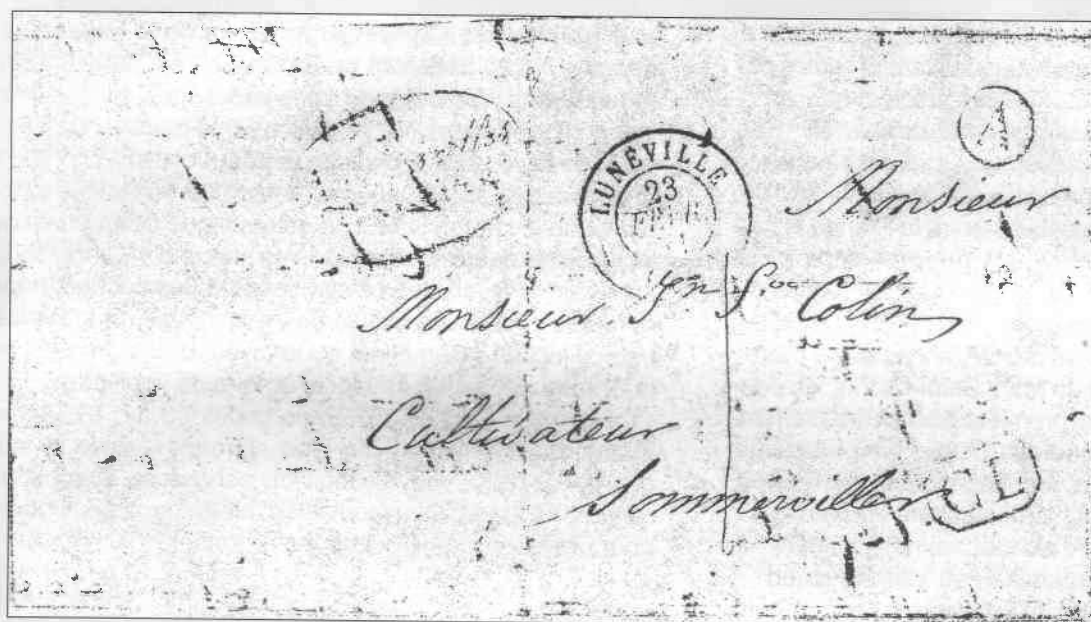 A
LUNÉVILLE
23
Monsieur
Monsieur Colin
Cultivateur
Sommerviller
CL